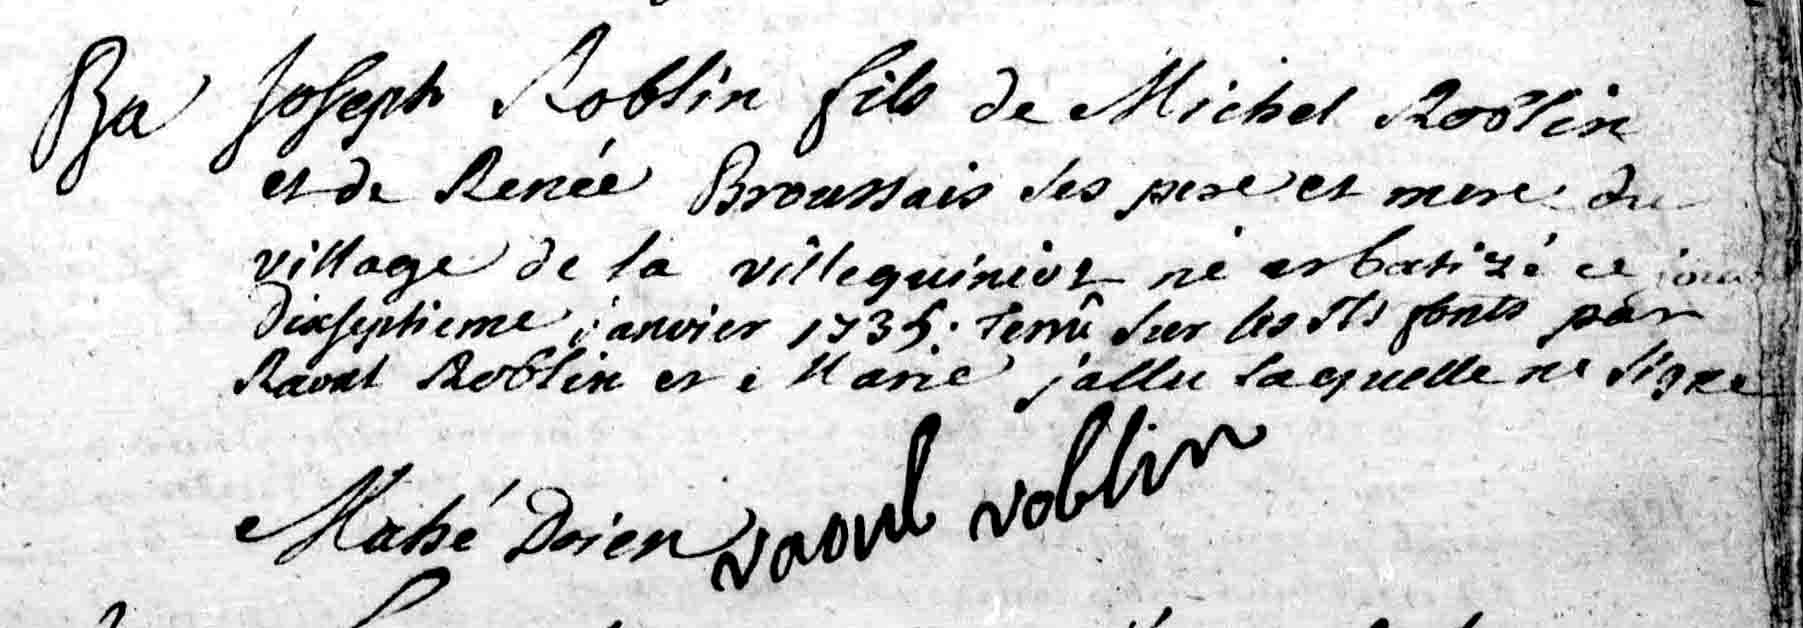 Ba Joseph Roblin fils de Michel Roblin
et de Renée Broussais ses pere et mere du
village de la villequiniot né et batizé ce jour
dixseptieme janvier 1735. Tenû sur les Sts fonts par
Raoul Roblin et Marie jallu laquelle ne signe
Mahé Doien
raoul roblin